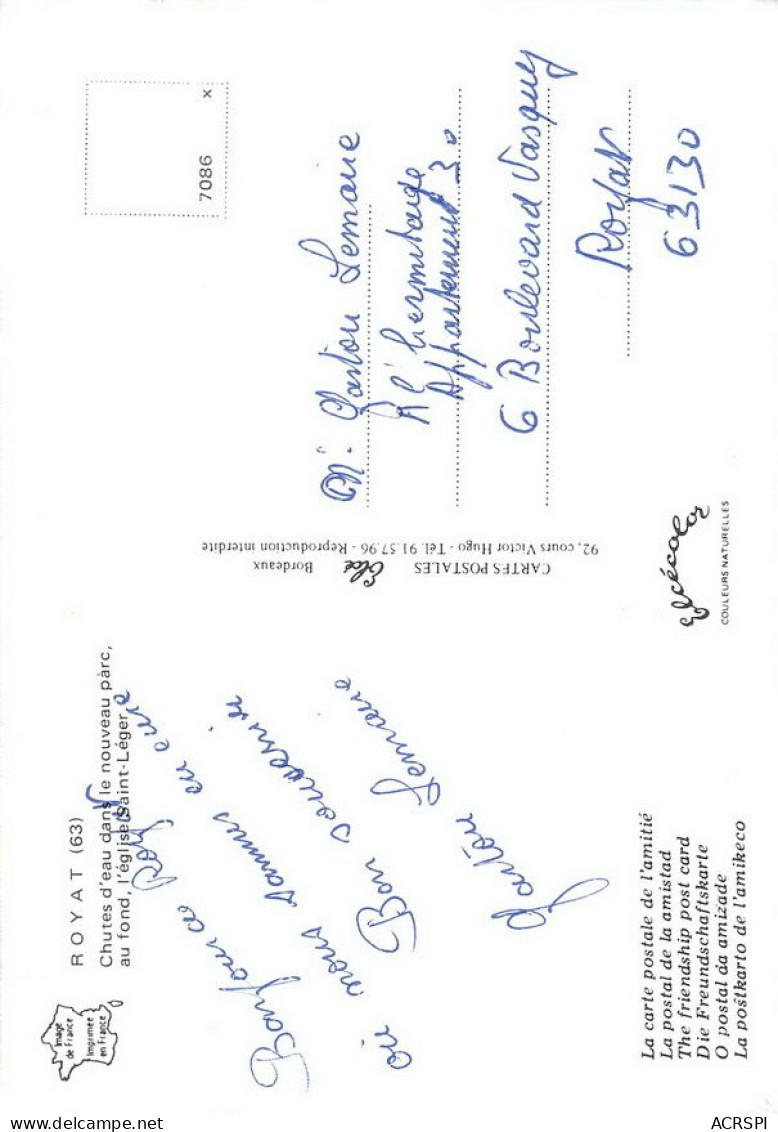 ROYAT (63)
Chutes d'eau dans le nouveau parc,
au fond, l'église Saint-Léger
Image
de France
Imprimée
en France
Bonjour de Royat
où nous sommes en cure
Bon souvenir
Gaston Lemaire
La carte postale de l'amitié
La postal de la amistad
The friendship post card
Die Freundschaftskarte
O postal da amizade
La poŝtkarto de l'amikeco
CARTES POSTALES Elcé Bordeaux
92, cours Victor Hugo - Tél. 91.57.96 - Reproduction interdite
Elcécolor
COULEURS NATURELLES
7086 x
M. Gaston Lemaire
A l'hermitage
Appartement 30
6 Boulevard Vasquez
Royat
63130
ACRSPI